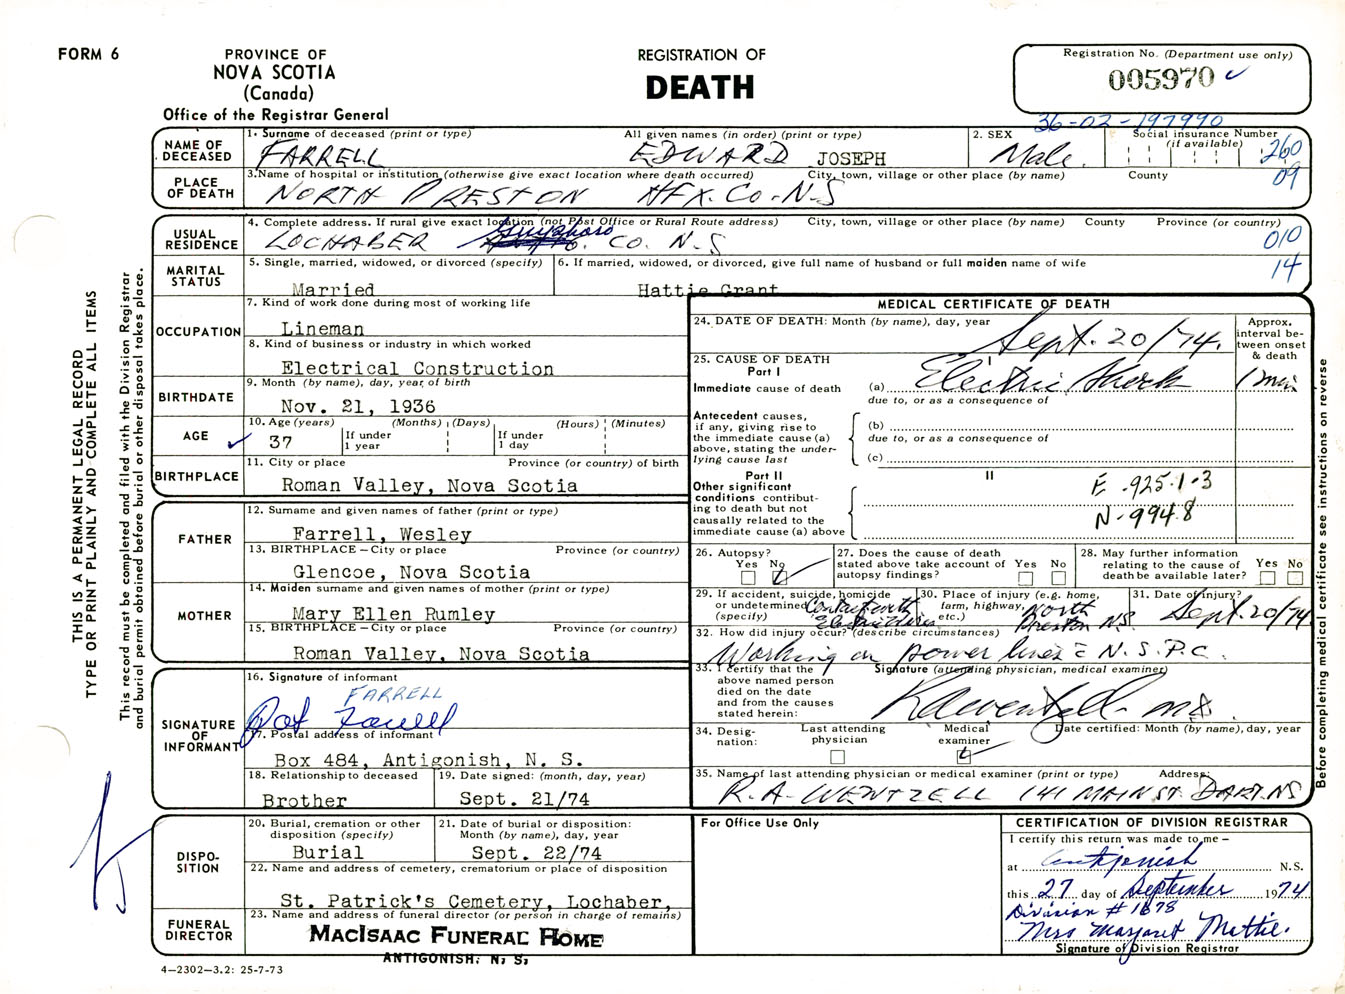 FORM 6
PROVINCE OF
NOVA SCOTIA
(Canada)
Office of the Registrar General
REGISTRATION OF
DEATH
Registration No. (Department use only)
005970
36-02-197990
NAME OF DECEASED
1. Surname of deceased (print or type) All given names (in order) (print or type)
FARRELL EDWARD JOSEPH
2. SEX
Male.
Social insurance Number
(if available)
260
PLACE OF DEATH
3. Name of hospital or institution (otherwise give exact location where death occurred) City, town, village or other place (by name) County
NORTH PRESTON HFX. Co. N.S
09
USUAL RESIDENCE
4. Complete address. If rural give exact location (not Post Office or Rural Route address) City, town, village or other place (by name) County Province (or country)
Guysboro
LOCHABER CO. N.S
010
MARITAL STATUS
5. Single, married, widowed, or divorced (specify)
Married
6. If married, widowed, or divorced, give full name of husband or full maiden name of wife
Hattie Grant
14
OCCUPATION
7. Kind of work done during most of working life
Lineman
8. Kind of business or industry in which worked
Electrical Construction
BIRTHDATE
9. Month (by name), day, year, of birth
Nov. 21, 1936
AGE
10. Age (years) (Months) (Days) (Hours) (Minutes)
37 If under 1 year If under 1 day
BIRTHPLACE
11. City or place Province (or country) of birth
Roman Valley, Nova Scotia
FATHER
12. Surname and given names of father (print or type)
Farrell, Wesley
13. BIRTHPLACE – City or place Province (or country)
Glencoe, Nova Scotia
MOTHER
14. Maiden surname and given names of mother (print or type)
Mary Ellen Rumley
15. BIRTHPLACE – City or place Province (or country)
Roman Valley, Nova Scotia
SIGNATURE OF INFORMANT
16. Signature of informant
FARRELL
Pat Farrell
17. Postal address of informant
Box 484, Antigonish, N. S.
18. Relationship to deceased
Brother
19. Date signed: (month, day, year)
Sept. 21/74
DISPO-SITION
20. Burial, cremation or other disposition (specify)
Burial
21. Date of burial or disposition: Month (by name), day, year
Sept. 22/74
22. Name and address of cemetery, crematorium or place of disposition
St. Patrick's Cemetery, Lochaber,
FUNERAL DIRECTOR
23. Name and address of funeral director (or person in charge of remains)
MACISAAC FUNERAL HOME
ANTIGONISH, N. S.
4—2302—3.2: 25-7-73
MEDICAL CERTIFICATE OF DEATH
24. DATE OF DEATH: Month (by name), day, year
Sept. 20/74.
Approx. interval between onset & death
25. CAUSE OF DEATH
Part I
Immediate cause of death
(a) Electric Shock
1 min
due to, or as a consequence of
Antecedent causes, if any, giving rise to the immediate cause (a) above, stating the underlying cause last
(b)
due to, or as a consequence of
(c)
Part II
Other significant conditions contributing to death but not causally related to the immediate cause (a) above
II
E .925.1-3
N-994.8
26. Autopsy?
Yes No
27. Does the cause of death stated above take account of autopsy findings?
Yes No
28. May further information relating to the cause of death be available later?
Yes No
29. If accident, suicide, homicide or undetermined (specify)
Contact with
Electric Wires
30. Place of injury (e.g. home, farm, highway, etc.)
North
Preston N.S.
31. Date of injury?
Sept. 20/74
32. How did injury occur? (describe circumstances)
Working on power lines c̄ N.S.P.C.
33. I certify that the above named person died on the date and from the causes stated herein:
Signature (attending physician, medical examiner)
RAWentzell MD.
34. Designation:
Last attending physician
Medical examiner
Date certified: Month (by name), day, year
35. Name of last attending physician or medical examiner (print or type) Address:
R.A. WENTZELL 141 MAIN ST. DART. NS
For Office Use Only
CERTIFICATION OF DIVISION REGISTRAR
I certify this return was made to me –
at Antigonish N.S.
this 27 day of September 1974
Division # 1678
Mrs Margaret Mattie.
Signature of Division Registrar
THIS IS A PERMANENT LEGAL RECORD
TYPE OR PRINT PLAINLY AND COMPLETE ALL ITEMS
This record must be completed and filed with the Division Registrar
and burial permit obtained before burial or other disposal takes place.
Before completing medical certificate see instructions on reverse